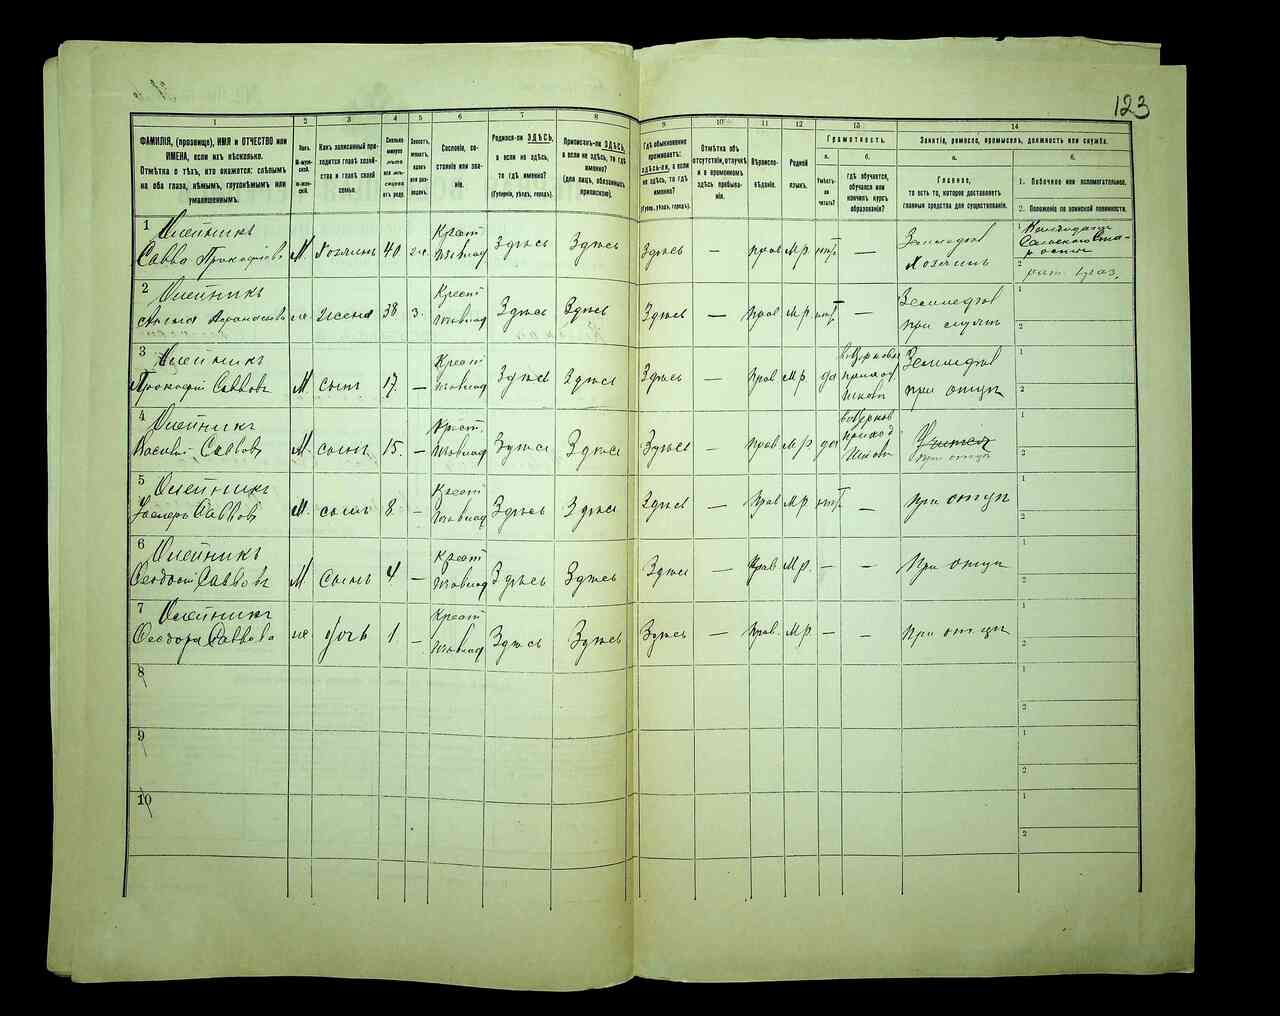 123
1
2
3
4
5
6
7
8
9
10
11
12
13
14
ФАМИЛІЯ, (прозвище), ИМЯ и ОТЧЕСТВО или
ИМЕНА, если ихъ нѣсколько.
Отмѣтка о тѣхъ, кто окажется: слѣпымъ
на оба глаза, нѣмымъ, глухонѣмымъ или
умалишеннымъ.
Полъ.
М-муж-
ской.
Ж-жен-
скій.
Какъ записанный при-
ходится главѣ хозяй-
ства и главѣ своей
семьи.
Сколько
минуло
лѣтъ
или мѣ-
сяцевъ
отъ роду.
Холостъ,
женатъ,
вдовъ
или раз-
веденъ.
Сословіе, со-
стояніе или зва-
ніе.
Родился-ли ЗДѢСЬ,
а если не здѣсь,
то гдѣ именно?
(Губернія, уѣздъ, городъ).
Приписанъ-ли ЗДѢСЬ,
а если не здѣсь, то гдѣ
именно?
(для лицъ, обязанныхъ
припискою).
Гдѣ обыкновенно
проживаетъ:
здѣсь-ли, а если
не здѣсь, то гдѣ
именно?
(Губ., уѣздъ, городъ).
Отмѣтка объ
отсутствіи, отлучкѣ
и о временномъ
здѣсь пребыва-
ніи.
Вѣроиспо-
вѣданіе.
Родной
языкъ.
Грамотность.
а.
б.
Умѣетъ-
ли
читать?
гдѣ обучается,
обучался или
кончилъ курсъ
образованія?
Занятіе, ремесло, промыселъ, должность или служба.
а.
б.
Главное,
то есть то, которое доставляетъ
главныя средства для существованія.
1. Побочное или вспомогательное.
2. Положеніе по воинской повинности.
1 Олейникъ
Савва Прокофіевъ М. Хозяинъ 40 Крест Здѣсь Здѣсь Здѣсь — прав М.р. нѣтъ — Земледѣл Хозяинъ
2 Олейникъ
ж жена 38 З. Крест Здѣсь Здѣсь Здѣсь — Прав М.р. нѣтъ — Земледѣл при
3 Олейникъ
Прокофій Саввовъ М сынъ 17 — Крест Здѣсь Здѣсь Здѣсь — Прав М.р. да Земледѣл при отцѣ
4 Олейникъ
Василій Саввовъ М. сынъ 15. — Крест. Здѣсь Здѣсь Здѣсь — прав М.р. да Учится при отцѣ
5 Олейникъ
Саввовъ М. сынъ 8 — Крест Здѣсь Здѣсь Здѣсь — Прав М.р. нѣтъ — при отцѣ
6 Олейникъ
Феодосій Саввовъ М. Сынъ 4 — Крест Здѣсь Здѣсь Здѣсь — Прав М.р. — — При отцѣ
7 Олейникъ
Феодора Саввова ж дочь 1 — Крест Здѣсь Здѣсь Здѣсь — Прав. М.р. — — при отцѣ
8
9
10